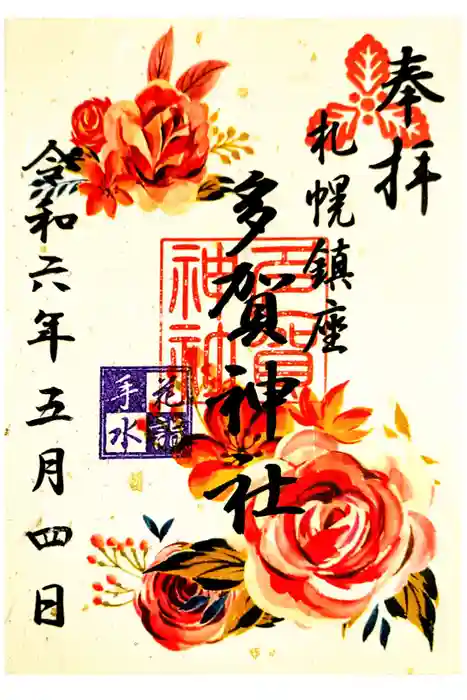 奉拝
札幌鎮座
多賀神社
多賀神社
花詣
手水
令和六年五月四日